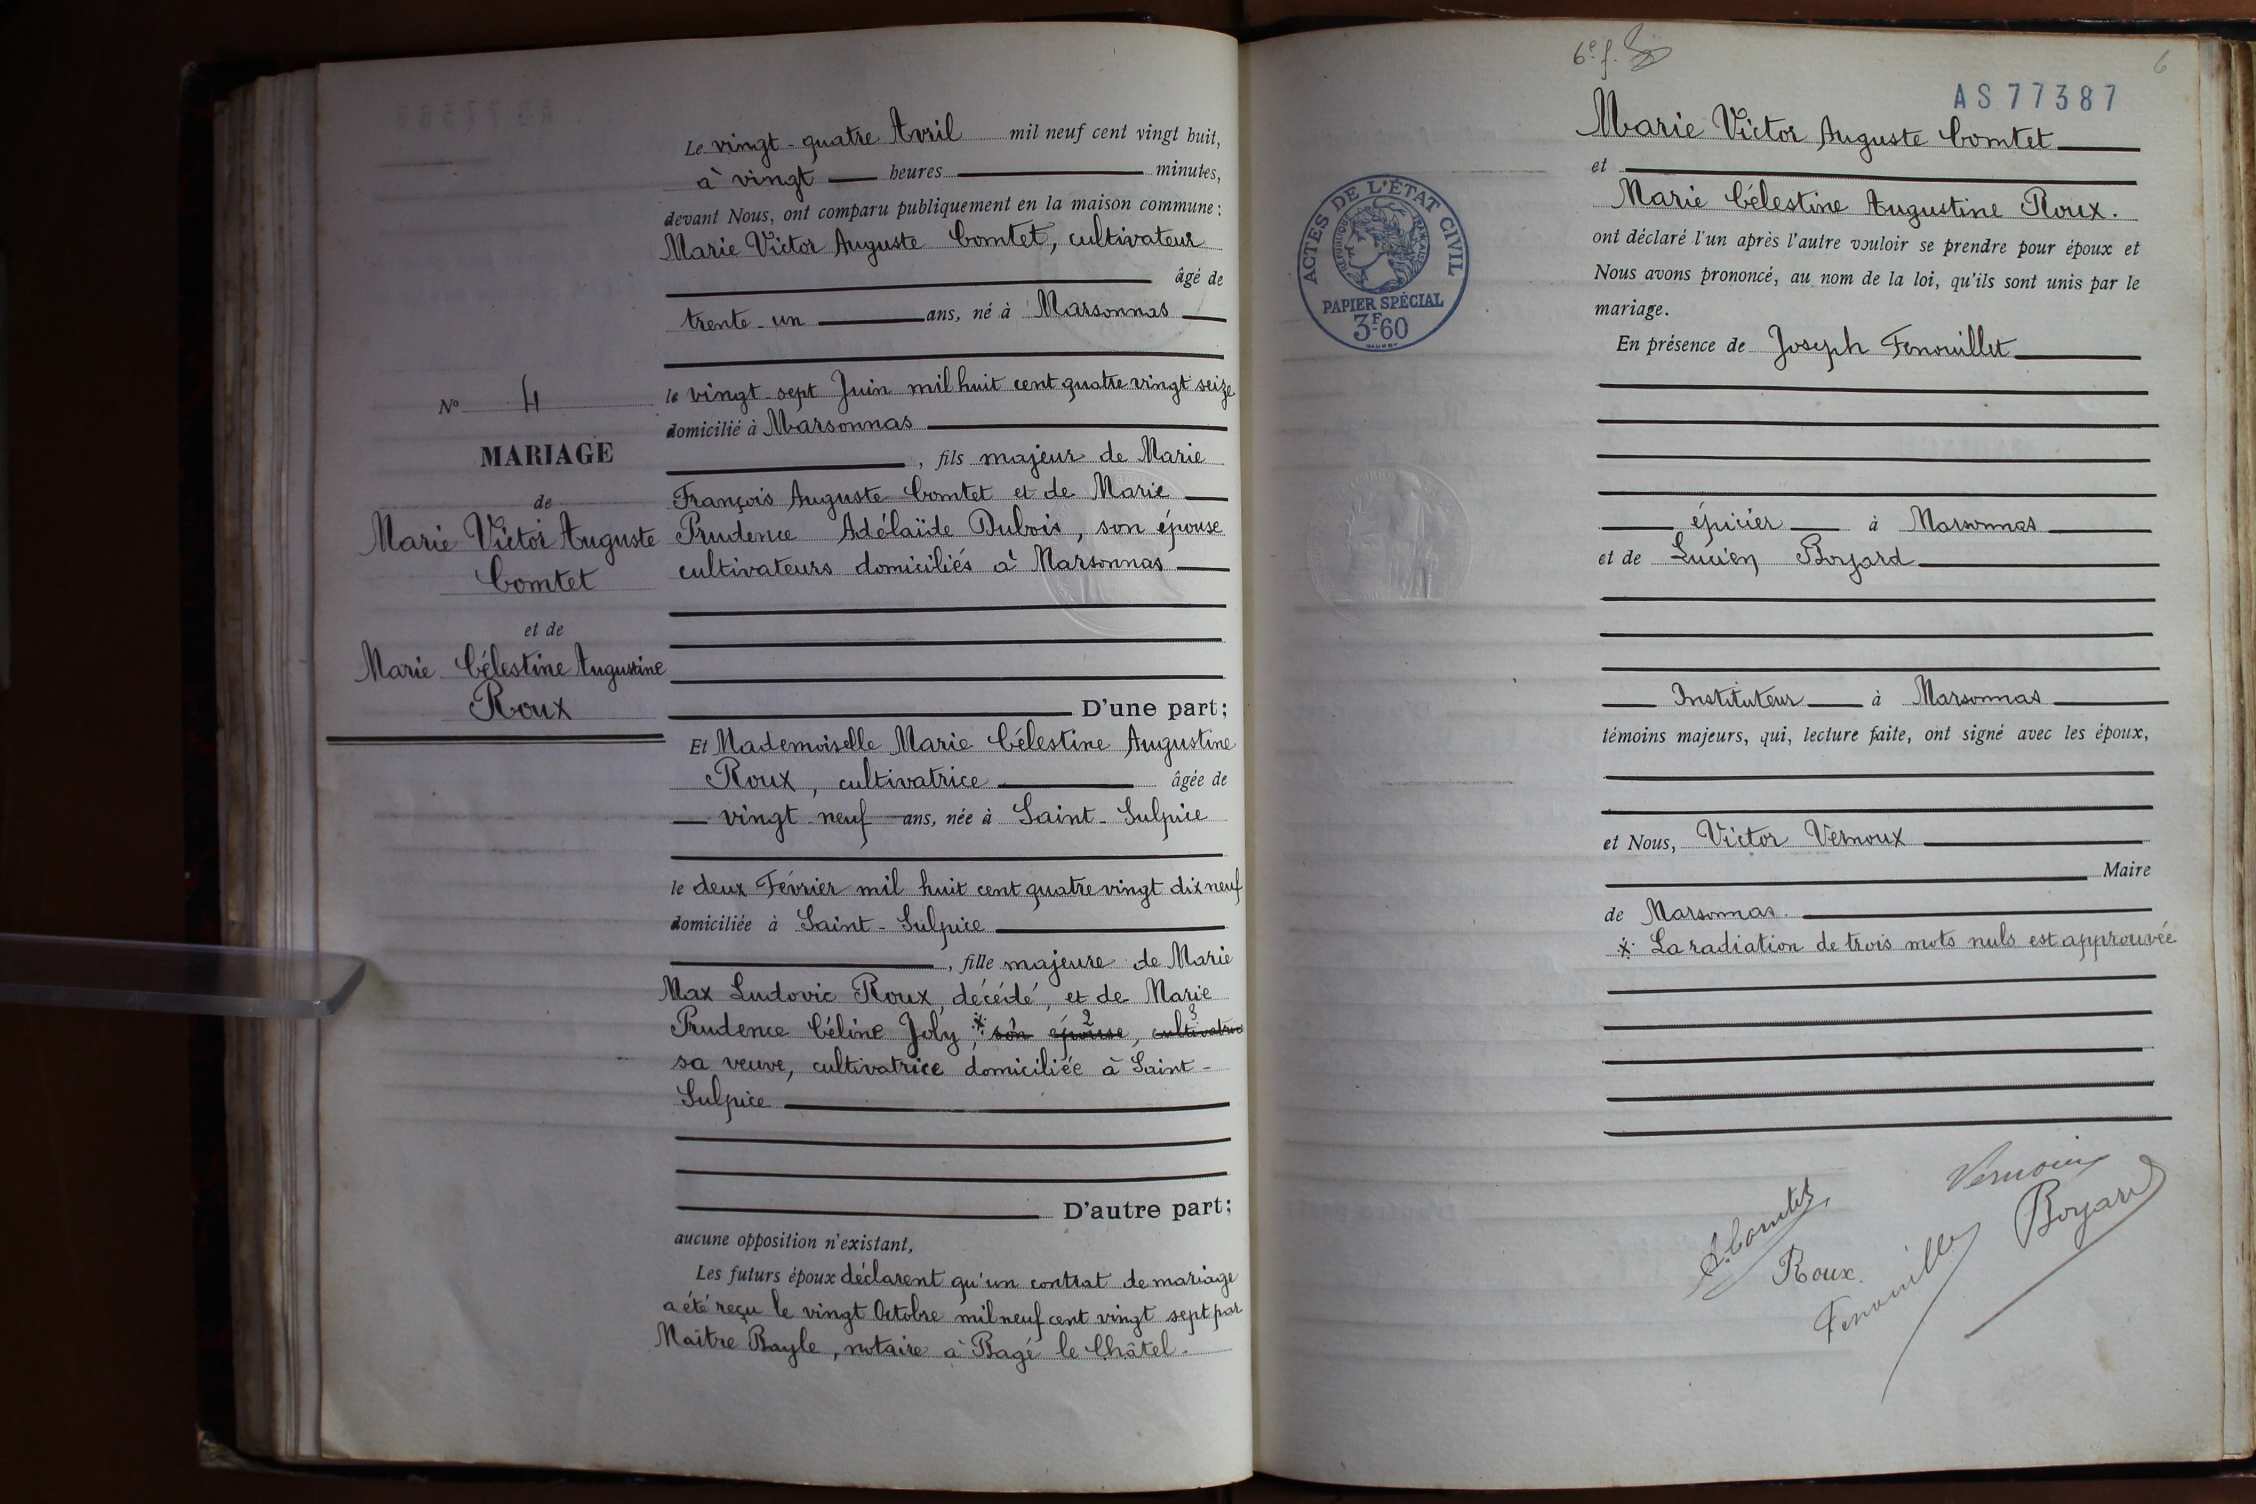 Nº 4
MARIAGE
de
Marie Victor Auguste
Comtet
et de
Marie Célestine Augustine
Roux
Le vingt-quatre Avril mil neuf cent vingt huit,
à vingt heures minutes,
devant Nous, ont comparu publiquement en la maison commune :
Marie Victor Auguste Comtet, cultivateur
âgé de
trente-un ans, né à Marsonnas
le vingt-sept Juin mil huit cent quatre vingt seize
domicilié à Marsonnas
, fils majeur de Marie
François Auguste Comtet et de Marie
Prudence Adélaïde Dubois, son épouse
cultivateurs domiciliés à Marsonnas
D'une part;
Et Mademoiselle Marie Célestine Augustine
Roux, cultivatrice âgée de
vingt-neuf ans, née à Saint-Sulpice
le deux Février mil huit cent quatre vingt dix neuf
domiciliée à Saint-Sulpice
, fille majeure de Marie
Max Ludovic Roux, décédé, et de Marie
Prudence Céline Joly, son épouse, cultivatrice
sa veuve, cultivatrice domiciliée à Saint-
Sulpice
D'autre part;
aucune opposition n'existant,
Les futurs époux déclarent qu'un contrat de mariage
a été reçu le vingt Octobre mil neuf cent vingt sept par
Maitre Bayle, notaire à Bagé le Châtel.
6e f.
6
AS 77387
ACTES DE L'ÉTAT CIVIL
RÉPUBLIQUE FRANÇAISE
PAPIER SPÉCIAL
3F60
Marie Victor Auguste Comtet
et
Marie Célestine Augustine Roux.
ont déclaré l'un après l'autre vouloir se prendre pour époux et
Nous avons prononcé, au nom de la loi, qu'ils sont unis par le
mariage.
En présence de Joseph Fenouillet
épicier à Marsonnas
et de Lucien Boyard
Instituteur à Marsonnas
témoins majeurs, qui, lecture faite, ont signé avec les époux,
et Nous, Victor Vernoux
Maire
de Marsonnas.
La radiation de trois mots nuls est approuvée
Vernoux
A. Comtet
Boyard
Roux
Fenouillet